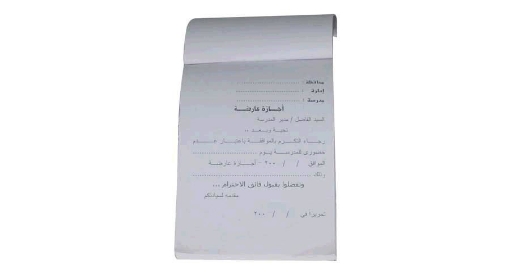 محافظة : ............................
إدارة : ............................
مدرسة : ............................
أجازة عارضة
السيد الفاضل / مدير المدرسة
تحية وبعد ،،
رجاء التكرم بالموافقة باعتبار عدم
حضوري للمدرسة يوم ............................
الموافق / / ٢٠٠ أجازة عارضة
وذلك ............................
وتفضلوا بقبول فائق الاحترام ...
مقدمه لسيادتكم
تحريرا في / / ٢٠٠